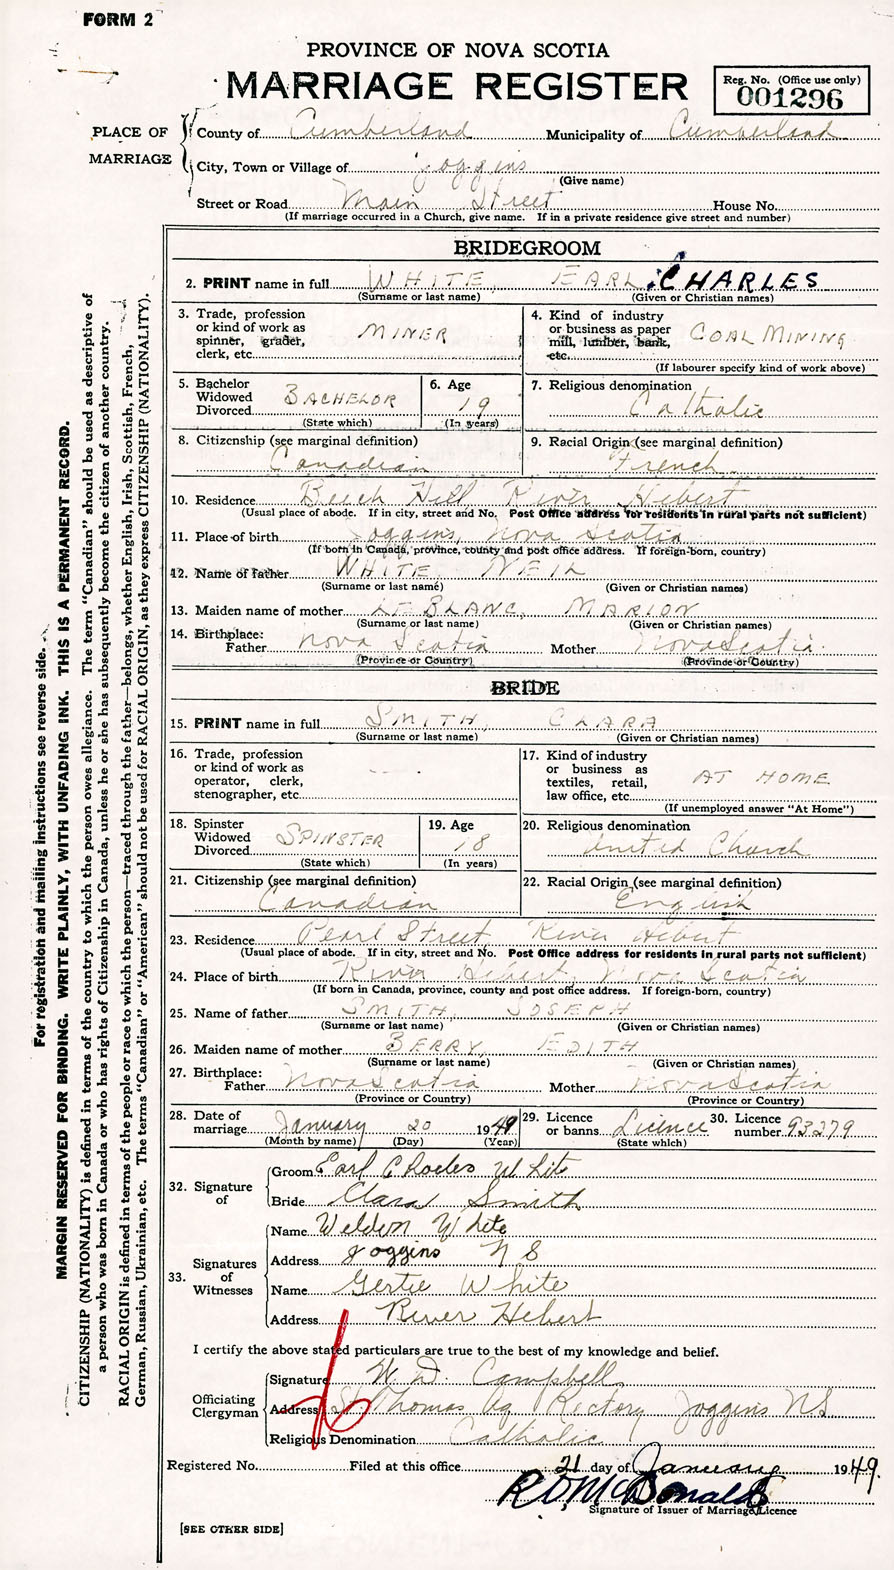 FORM 2
PROVINCE OF NOVA SCOTIA
MARRIAGE REGISTER
Reg. No. (Office use only)
001296
PLACE OF MARRIAGE
County of Cumberland Municipality of Cumberland
City, Town or Village of Joggins
(Give name)
Street or Road Main Street House No.
(If marriage occurred in a Church, give name. If in a private residence give street and number)
BRIDEGROOM
2. PRINT name in full WHITE, EARL CHARLES
(Surname or last name) (Given or Christian names)
3. Trade, profession or kind of work as spinner, grader, clerk, etc. MINER
4. Kind of industry or business as paper mill, lumber, bank, etc. COAL MINING
(If labourer specify kind of work above)
5. Bachelor Widowed Divorced BACHELOR
(State which)
6. Age 19
(In years)
7. Religious denomination Catholic
8. Citizenship (see marginal definition) Canadian
9. Racial Origin (see marginal definition) French
10. Residence Beech Hill River Hebert
(Usual place of abode. If in city, street and No. Post Office address for residents in rural parts not sufficient)
11. Place of birth Joggins, Nova Scotia
(If born in Canada, province, county and post office address. If foreign-born, country)
12. Name of father WHITE NEIL
(Surname or last name) (Given or Christian names)
13. Maiden name of mother LEBLANC, MARION
(Surname or last name) (Given or Christian names)
14. Birthplace:
Father Nova Scotia Mother Nova Scotia
(Province or Country) (Province or Country)
BRIDE
15. PRINT name in full SMITH, CLARA
(Surname or last name) (Given or Christian names)
16. Trade, profession or kind of work as operator, clerk, stenographer, etc.
17. Kind of industry or business as textiles, retail, law office, etc. AT HOME
(If unemployed answer "At Home")
18. Spinster Widowed Divorced SPINSTER
(State which)
19. Age 18
(In years)
20. Religious denomination United Church
21. Citizenship (see marginal definition) Canadian
22. Racial Origin (see marginal definition) English
23. Residence Pearl Street River Hebert
(Usual place of abode. If in city, street and No. Post Office address for residents in rural parts not sufficient)
24. Place of birth River Hebert, Nova Scotia
(If born in Canada, province, county and post office address. If foreign-born, country)
25. Name of father SMITH, JOSEPH
(Surname or last name) (Given or Christian names)
26. Maiden name of mother BERRY, EDITH
(Surname or last name) (Given or Christian names)
27. Birthplace:
Father Nova Scotia Mother Nova Scotia
(Province or Country) (Province or Country)
28. Date of marriage January 20 1949
(Month by name) (Day) (Year)
29. Licence or banns Licence
(State which)
30. Licence number 93279
32. Signature of
Groom Earl Charles White
Bride Clara Smith
33. Signatures of Witnesses
Name Weldon White
Address Joggins N S
Name Gertie White
Address River Hebert
I certify the above stated particulars are true to the best of my knowledge and belief.
Officiating Clergyman
Signature W. D. Campbell
Address St Thomas Aq Rectory Joggins NS
Religious Denomination Catholic
Registered No. Filed at this office 21 day of January 1949.
R D McDonald
Signature of Issuer of Marriage Licence
[SEE OTHER SIDE]
For registration and mailing instructions see reverse side.
MARGIN RESERVED FOR BINDING. WRITE PLAINLY, WITH UNFADING INK. THIS IS A PERMANENT RECORD.
CITIZENSHIP (NATIONALITY) is defined in terms of the country to which the person owes allegiance. The term "Canadian" should be used as descriptive of
a person who was born in Canada or who has rights of Citizenship in Canada, unless he or she has subsequently become the citizen of another country.
RACIAL ORIGIN is defined in terms of the people or race to which the person—traced through the father—belongs, whether English, Irish, Scottish, French,
German, Russian, Ukrainian, etc. The terms "Canadian" or "American" should not be used for RACIAL ORIGIN, as they express CITIZENSHIP (NATIONALITY).